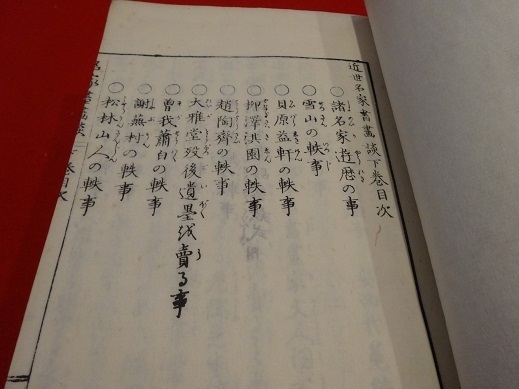 近世名家書畫談下巻目次
○諸名家遊歴の事
○雪山の軼事
○貝原益軒の軼事
○柳澤淇園の軼事
○趙陶齊の軼事
○大雅堂歿後遺墨を賣る事
○曽我蕭白の軼事
○謝蕪村の軼事
○松村山人の軼事